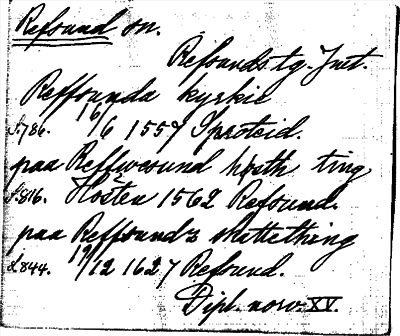 Refsund sn.
Refsunds tg. Jmt.
Reffsunda kyrkie
S.786. 16/6 1557 Iproteid.
paa Reffwesund hösth ting
S.816. Hösten 1562 Refsund.
paa Reffsundz skattething
S.844. 19/12 1627 Refsund.
Dipl. norv. XV.